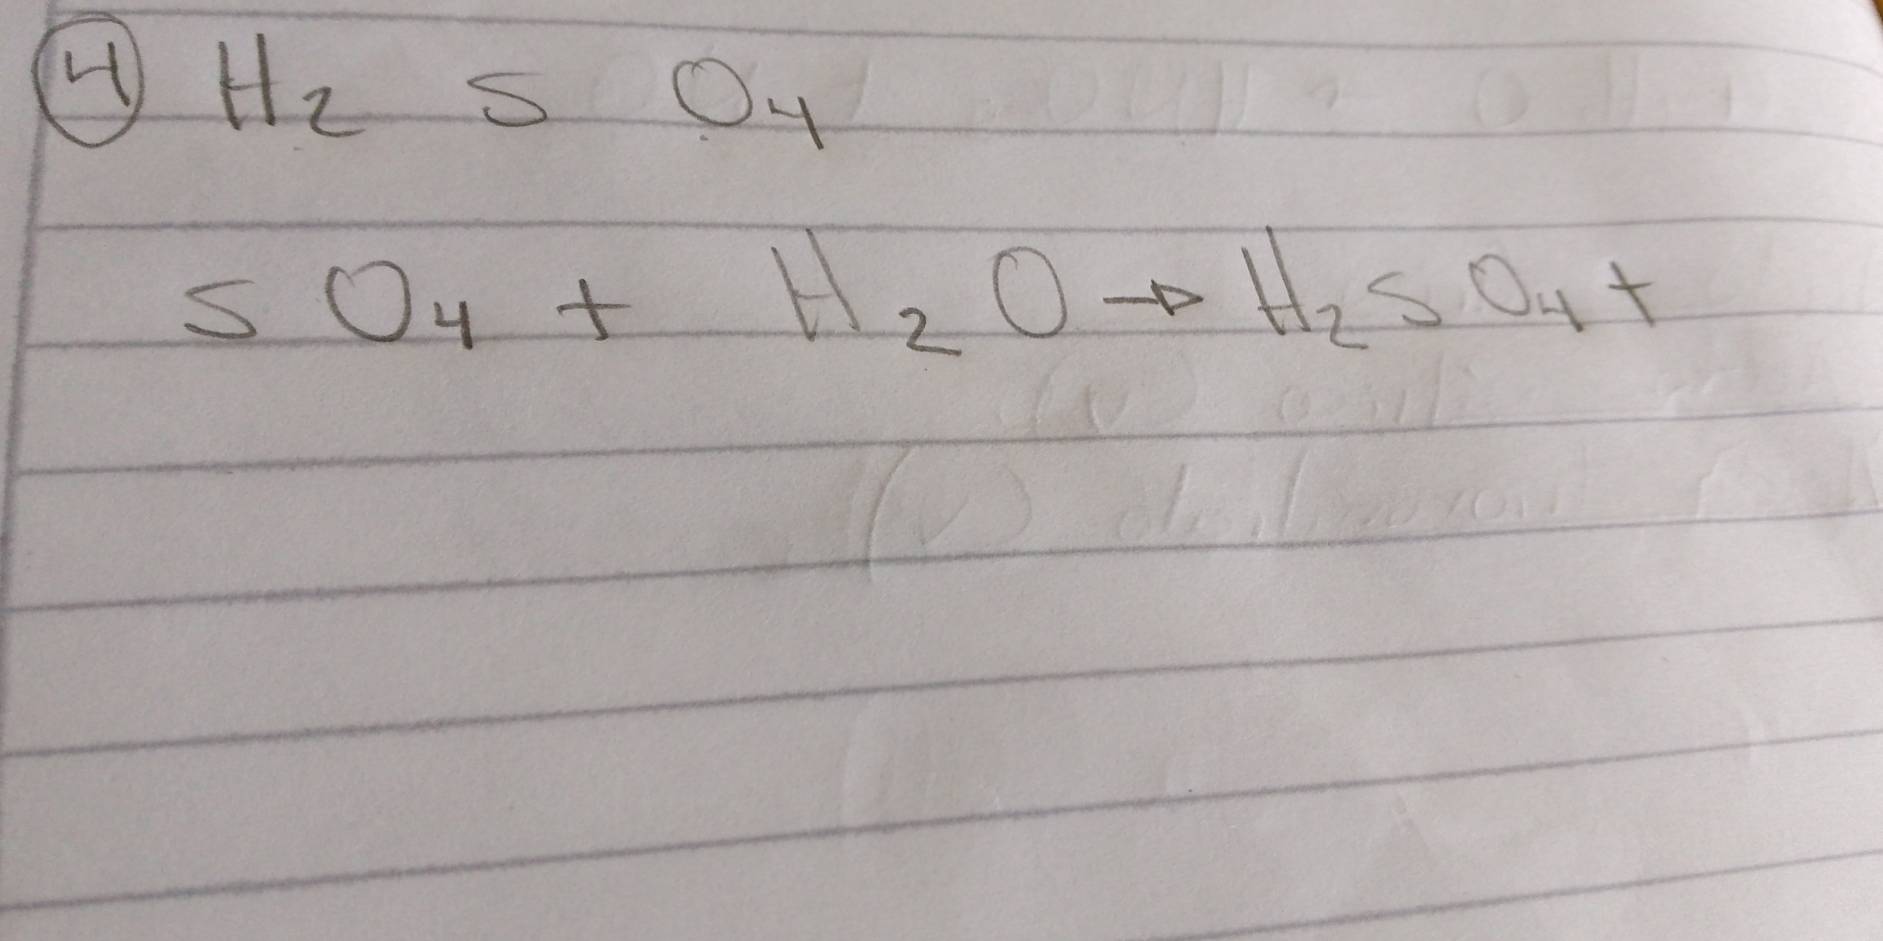 ④ H₂ S O₄
SO₄ + H₂O → H₂SO₄ +